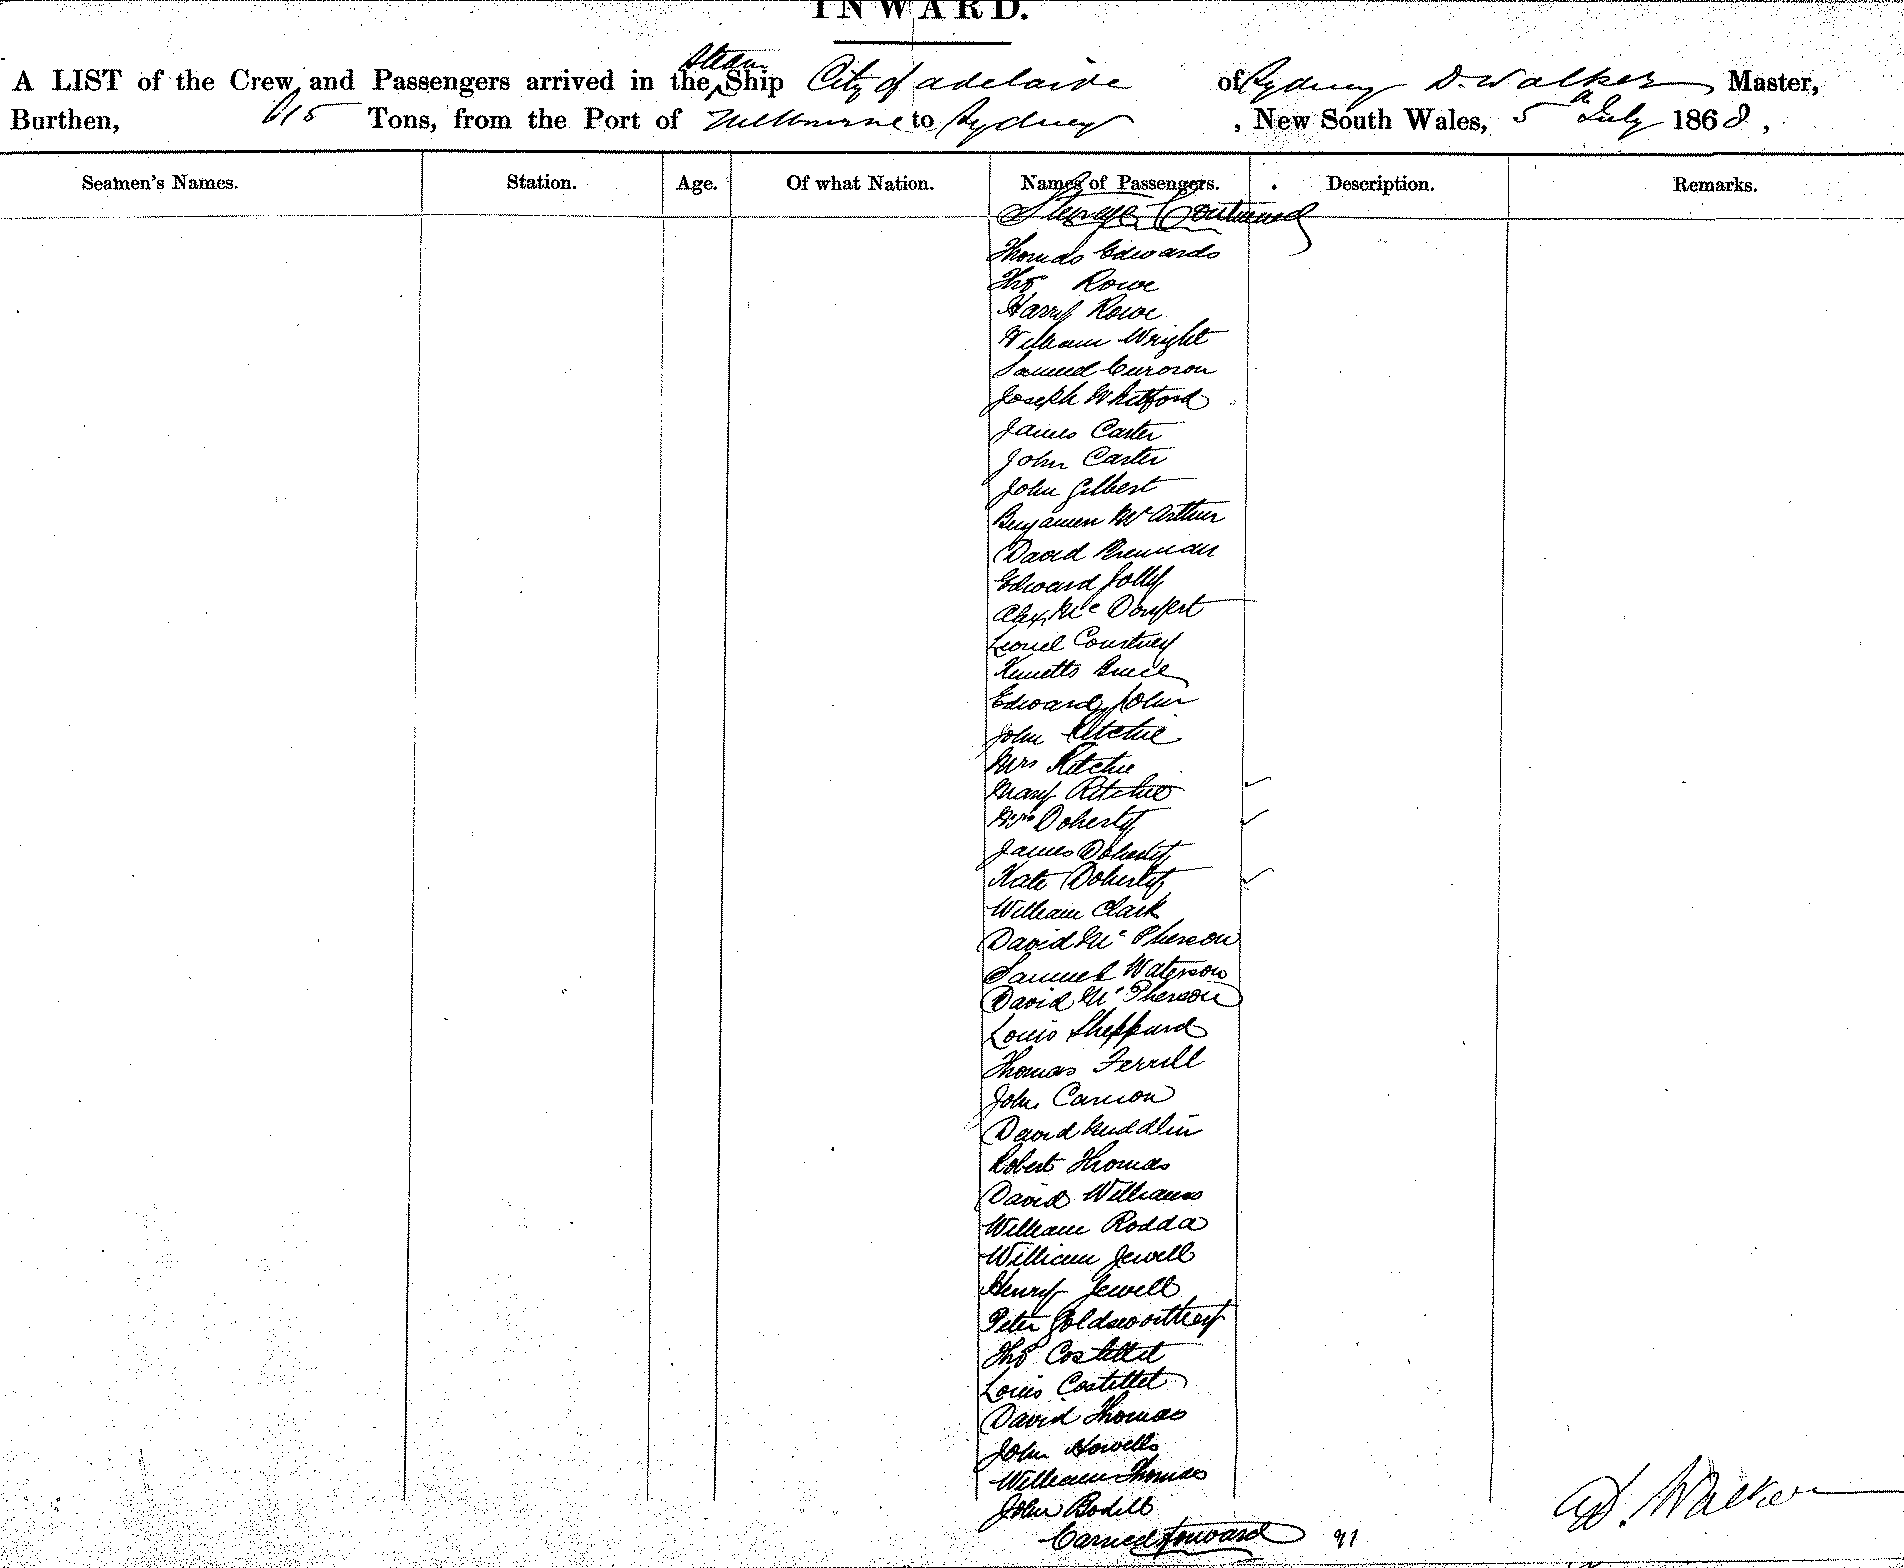 INWARD.
Steam
A LIST of the Crew and Passengers arrived in the Ship City of Adelaide of Sydney D. Walker, Master,
Burthen, 615 Tons, from the Port of Melbourne to Sydney, New South Wales, 5 July 1868,
Seamen's Names. Station. Age. Of what Nation. Names of Passengers. Description. Remarks.
Steerage Continued
Thomas Edwards
Thos Rowe
Harry Rowe
William Wright
Samuel
Joseph Whitford
James Carter
John Carter
John Gilbert
Benjamen McArthur
David Brennan
Edward Jolly
Alex Mc
Lionel Courtney
Bruce
Edward John
John Ritchie
Mrs Ritchie
Mary Ritchie
Mrs Doherty
James Doherty
Kate Doherty
William Clark
David McPherson
Samuel Waterson
David McPherson
Louis Sheppard
Thomas Ferrill
John Cannon
David
Robert Thomas
David Williams
William Rodda
William Jewell
Henry Jewell
Peter Goldsworthey
Thos Costellet
Louis Costellet
David Thomas
John Howells
William Thomas
John Bodilt
Carried forward 91
D. Walker